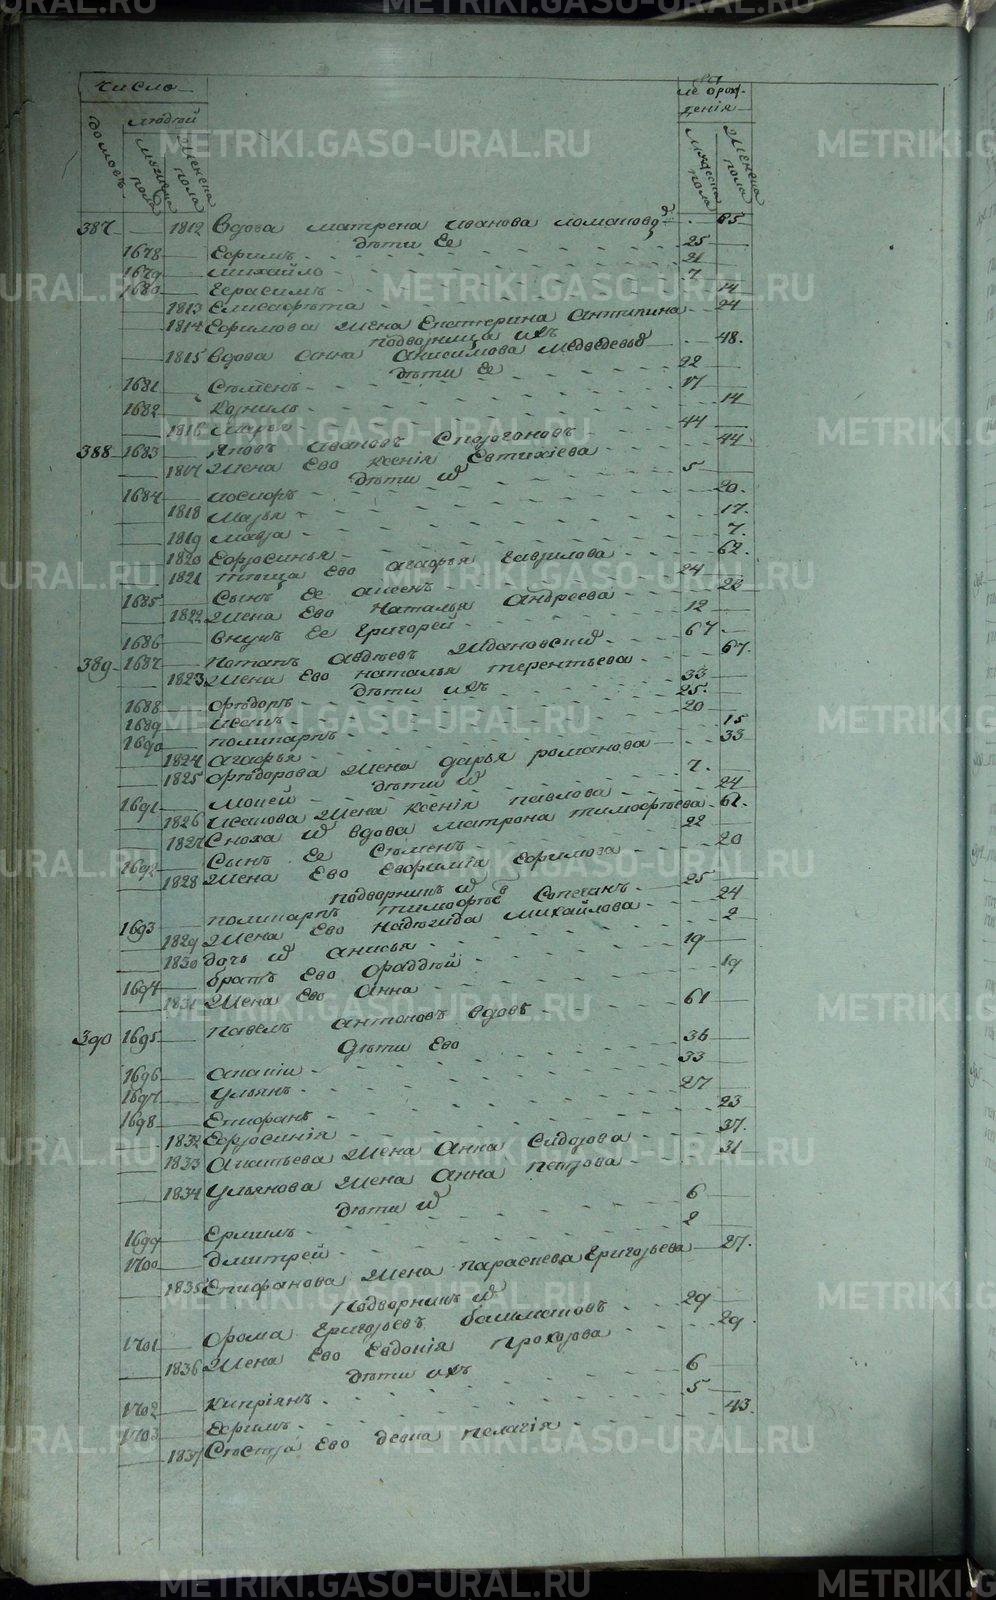 число
людей
домовъ
мужеска пола
женска пола
лѣ
ѿ рож-
денія
мужеска пола
женска пола
387 1812 Вдова матрена иванова 65
дѣти Ее
1678 Ефимъ 25
1679 михайло 21
1680 Герасимъ 7
1813 Елисафѣта 14
1814 Ефимова жена Екатерина Антипина 24
подворница ихъ
1815 Вдова Анна Анисимова медведевы 48
дѣти Ее
1681 Семенъ 22
1682 Корнилъ 17
1816 Марья 14
388 1683 Яковъ Ивановъ 44
1817 Жена Ево ксенія Евтихіева 44
дѣти
1684 5
1818 Марья 20
1819 мавра 17
1820 Ефросинья 7
1821 тіоща Ево Агафья Гаврилова 62
1685 Сынъ Ее 24
1822 Жена Ево Наталья Андреева 22
1686 Внукъ Ее Григорей 12
389 1687 Потапъ Авдѣевъ Ждановский 67
1823 Жена Ево наталья терентьева 67
дѣти ихъ
1688 Ѳедоръ 33
1689 25
1690 поликарпъ 20
1824 Агафья 15
1825 Ѳедорова Жена дарья романова 33
дѣти
1691 Мокей 7
1826 Жена ксенія павлова 24
1827 Сноха вдова матрона тимофѣева 61
1692 Сынъ Ее Семенъ 22
1828 Жена Ево Евфимія Ефимова 20
подворникъ
1693 поликарпъ тимофѣевъ 25
1829 Жена Ево Надѣгида михайлова 24
1830 дочь Анисья 2
1694 братъ Ево Фаддѣй 19
1831 Жена Ево Анна 19
390 1695 павелъ Антоновъ вдовъ 61
дѣти Ево
1696 36
1697 Ульянъ 33
1698 Епифанъ 27
1832 Ефросинія 23
1833 Жена Анна Сидорова 37
1834 Ульянова Жена Анна петрова 31
дѣти
1699 Ермилъ 6
1700 Дмитрей 2
1835 Епифанова Жена параскева Григорьева 27
подворникъ
1701 Фома Григорьевъ 29
1836 Жена Ево Евдокія прохорова 29
дѣти ихъ
1702 Кипріянъ 6
1703 Ефимъ 5
1837 Сестра Ево девка пелагія 43
METRIKI.GASO-URAL.RU